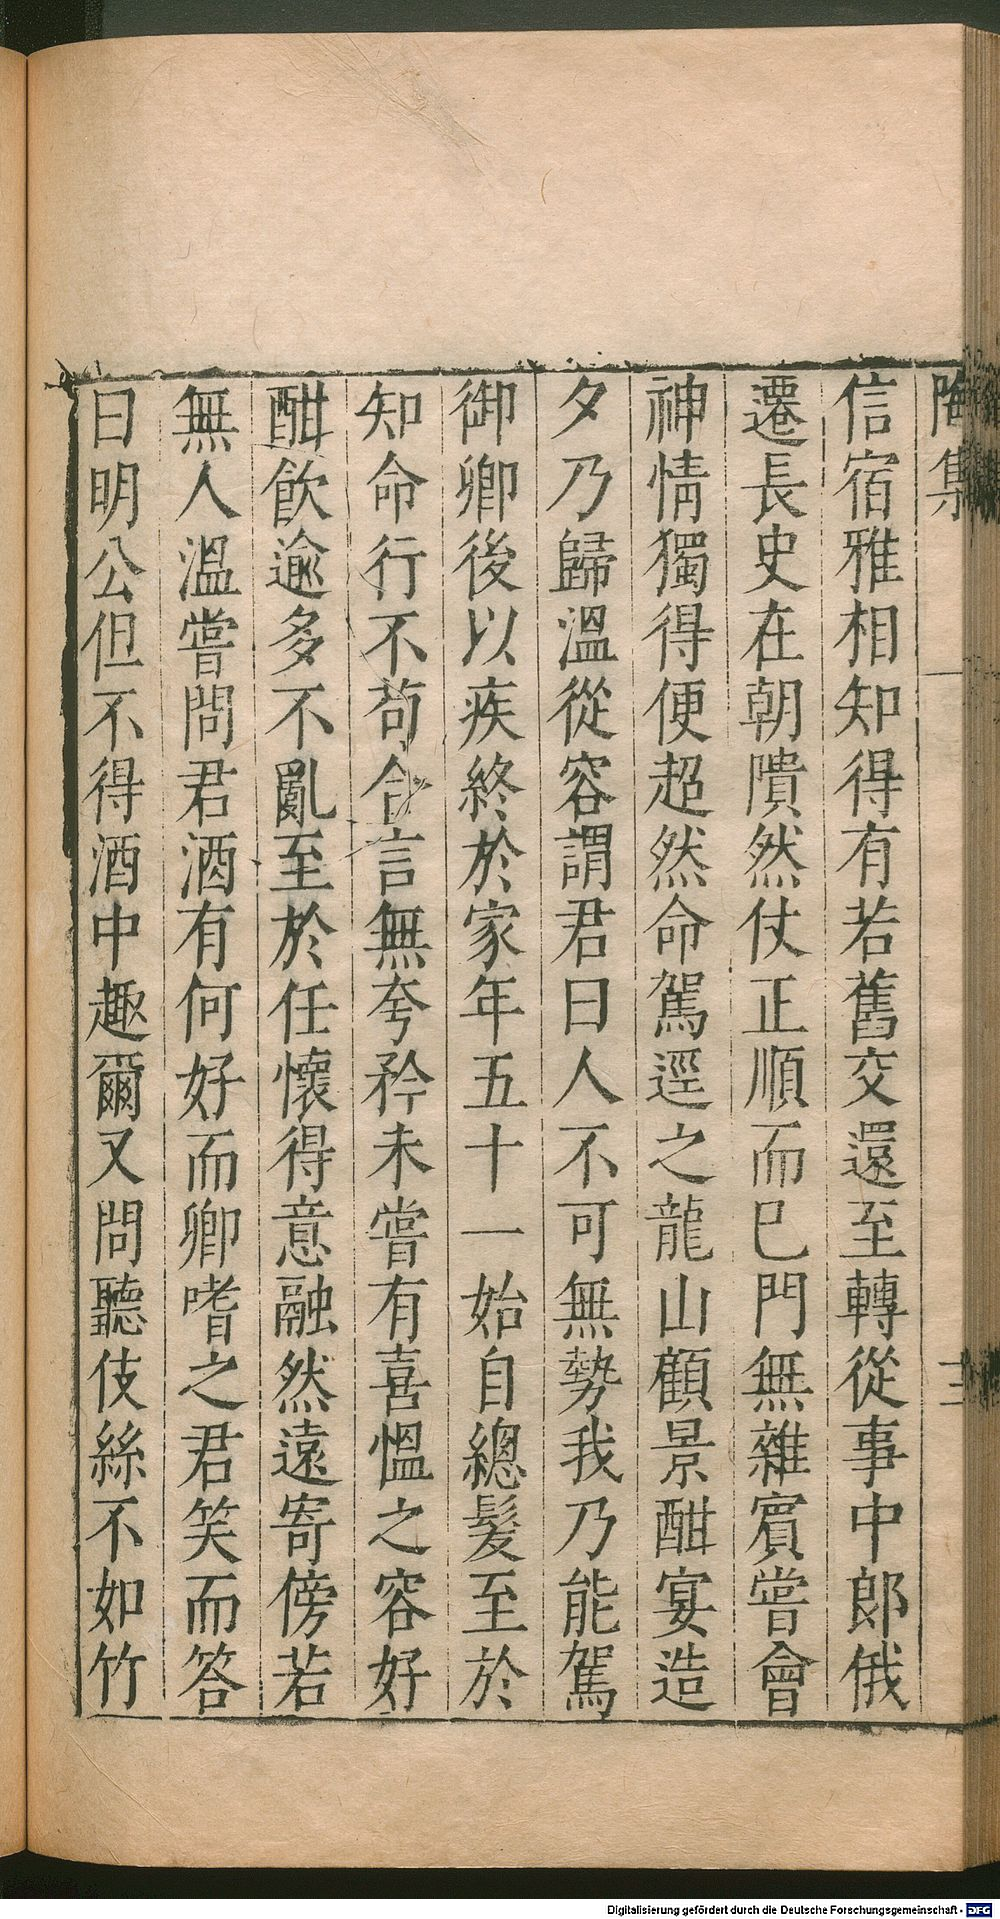 陶集
信宿雅相知得有若舊交還至轉從事中郎俄
遷長史在朝隤然仗正順而已門無雜賓嘗會
神情獨得便超然命駕逕之龍山顧景酣宴造
夕乃歸溫從容謂君曰人不可無勢我乃能駕
御卿後以疾終於家年五十一始自總髮至於
知命行不苟合言無夸矜未嘗有喜慍之容好
酣飲逾多不亂至於任懷得意融然遠寄傍若
無人溫嘗問君酒有何好而卿嗜之君笑而答
曰明公但不得酒中趣爾又問聽伎絲不如竹
Digitalisierung gefördert durch die Deutsche Forschungsgemeinschaft - DFG